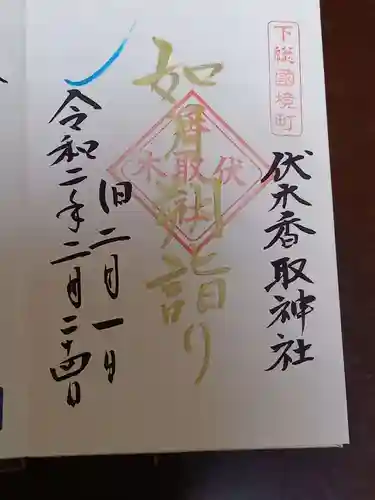 下総國境町
伏木香取神社
如月朔日詣り
伏取木
香
社
旧二月一日
令和二年二月二十四日